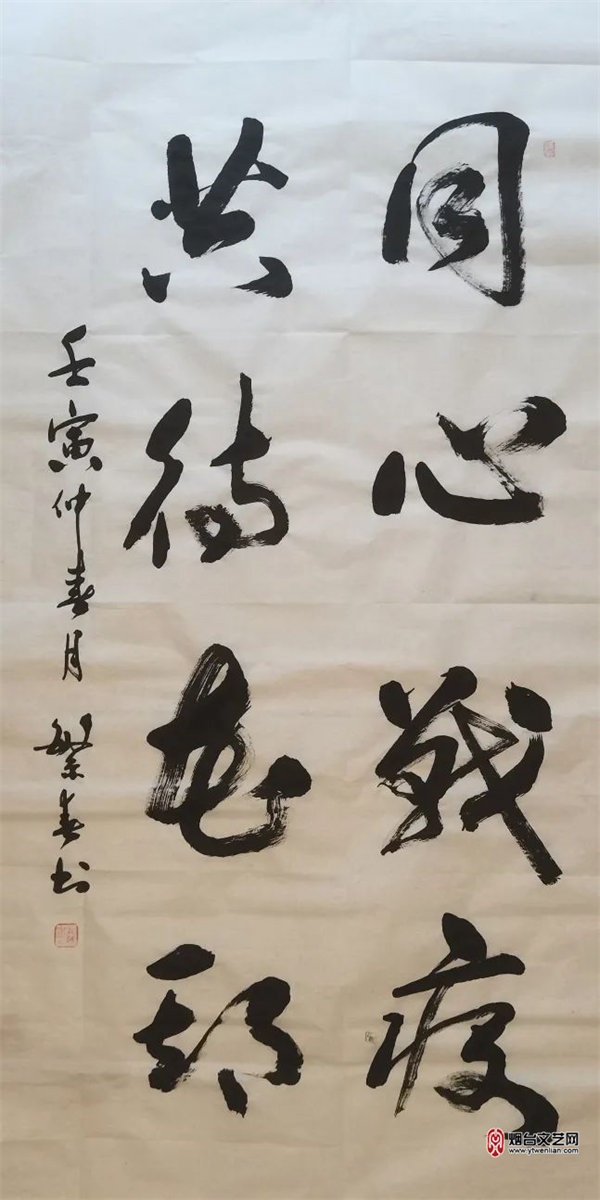 同心戰疫
共待花期
壬寅仲春月 繁春书
烟台文艺网
www.ytwenlian.com